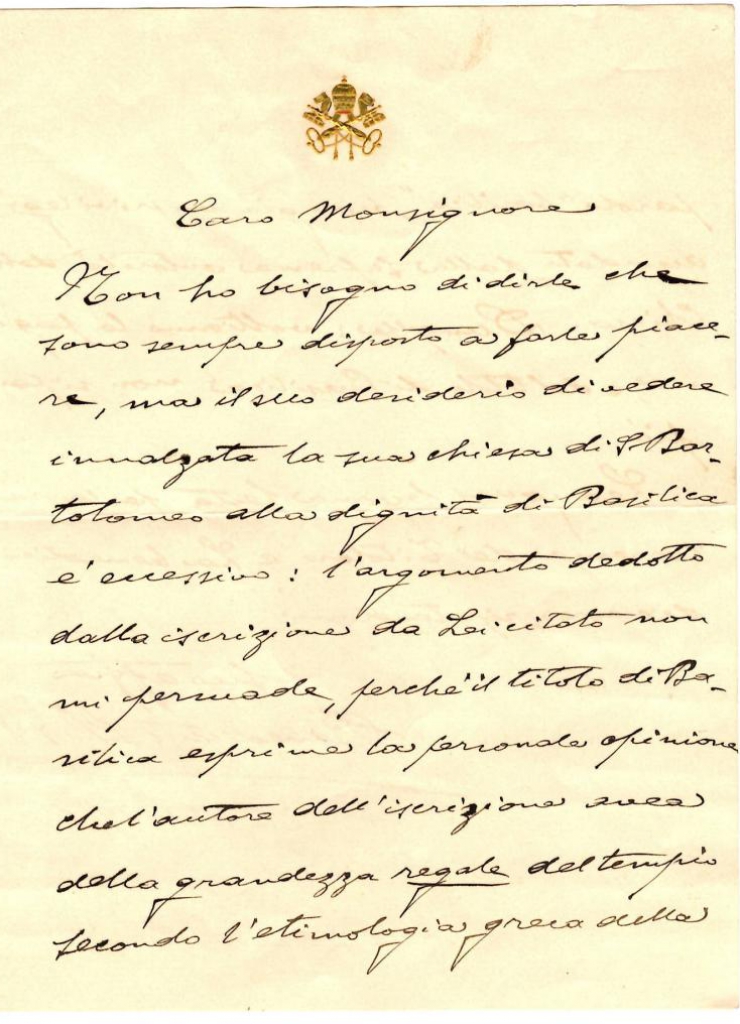 Caro Monsignore
Non ho bisogno di dirle che
sono sempre disposto a farle piace-
re, ma il suo desiderio di vedere
innalzata la sua chiesa di S. Bar-
tolomeo alla dignità di Basilica
e' eccessivo: l'argomento dedotto
dalla iscrizione da Lei citato non
mi persuade, perchè il titolo di Ba-
silica esprime la personale opinione
che l'autore dell'iscrizione avea
della grandezza regale del tempio
secondo l'etimologia greca della